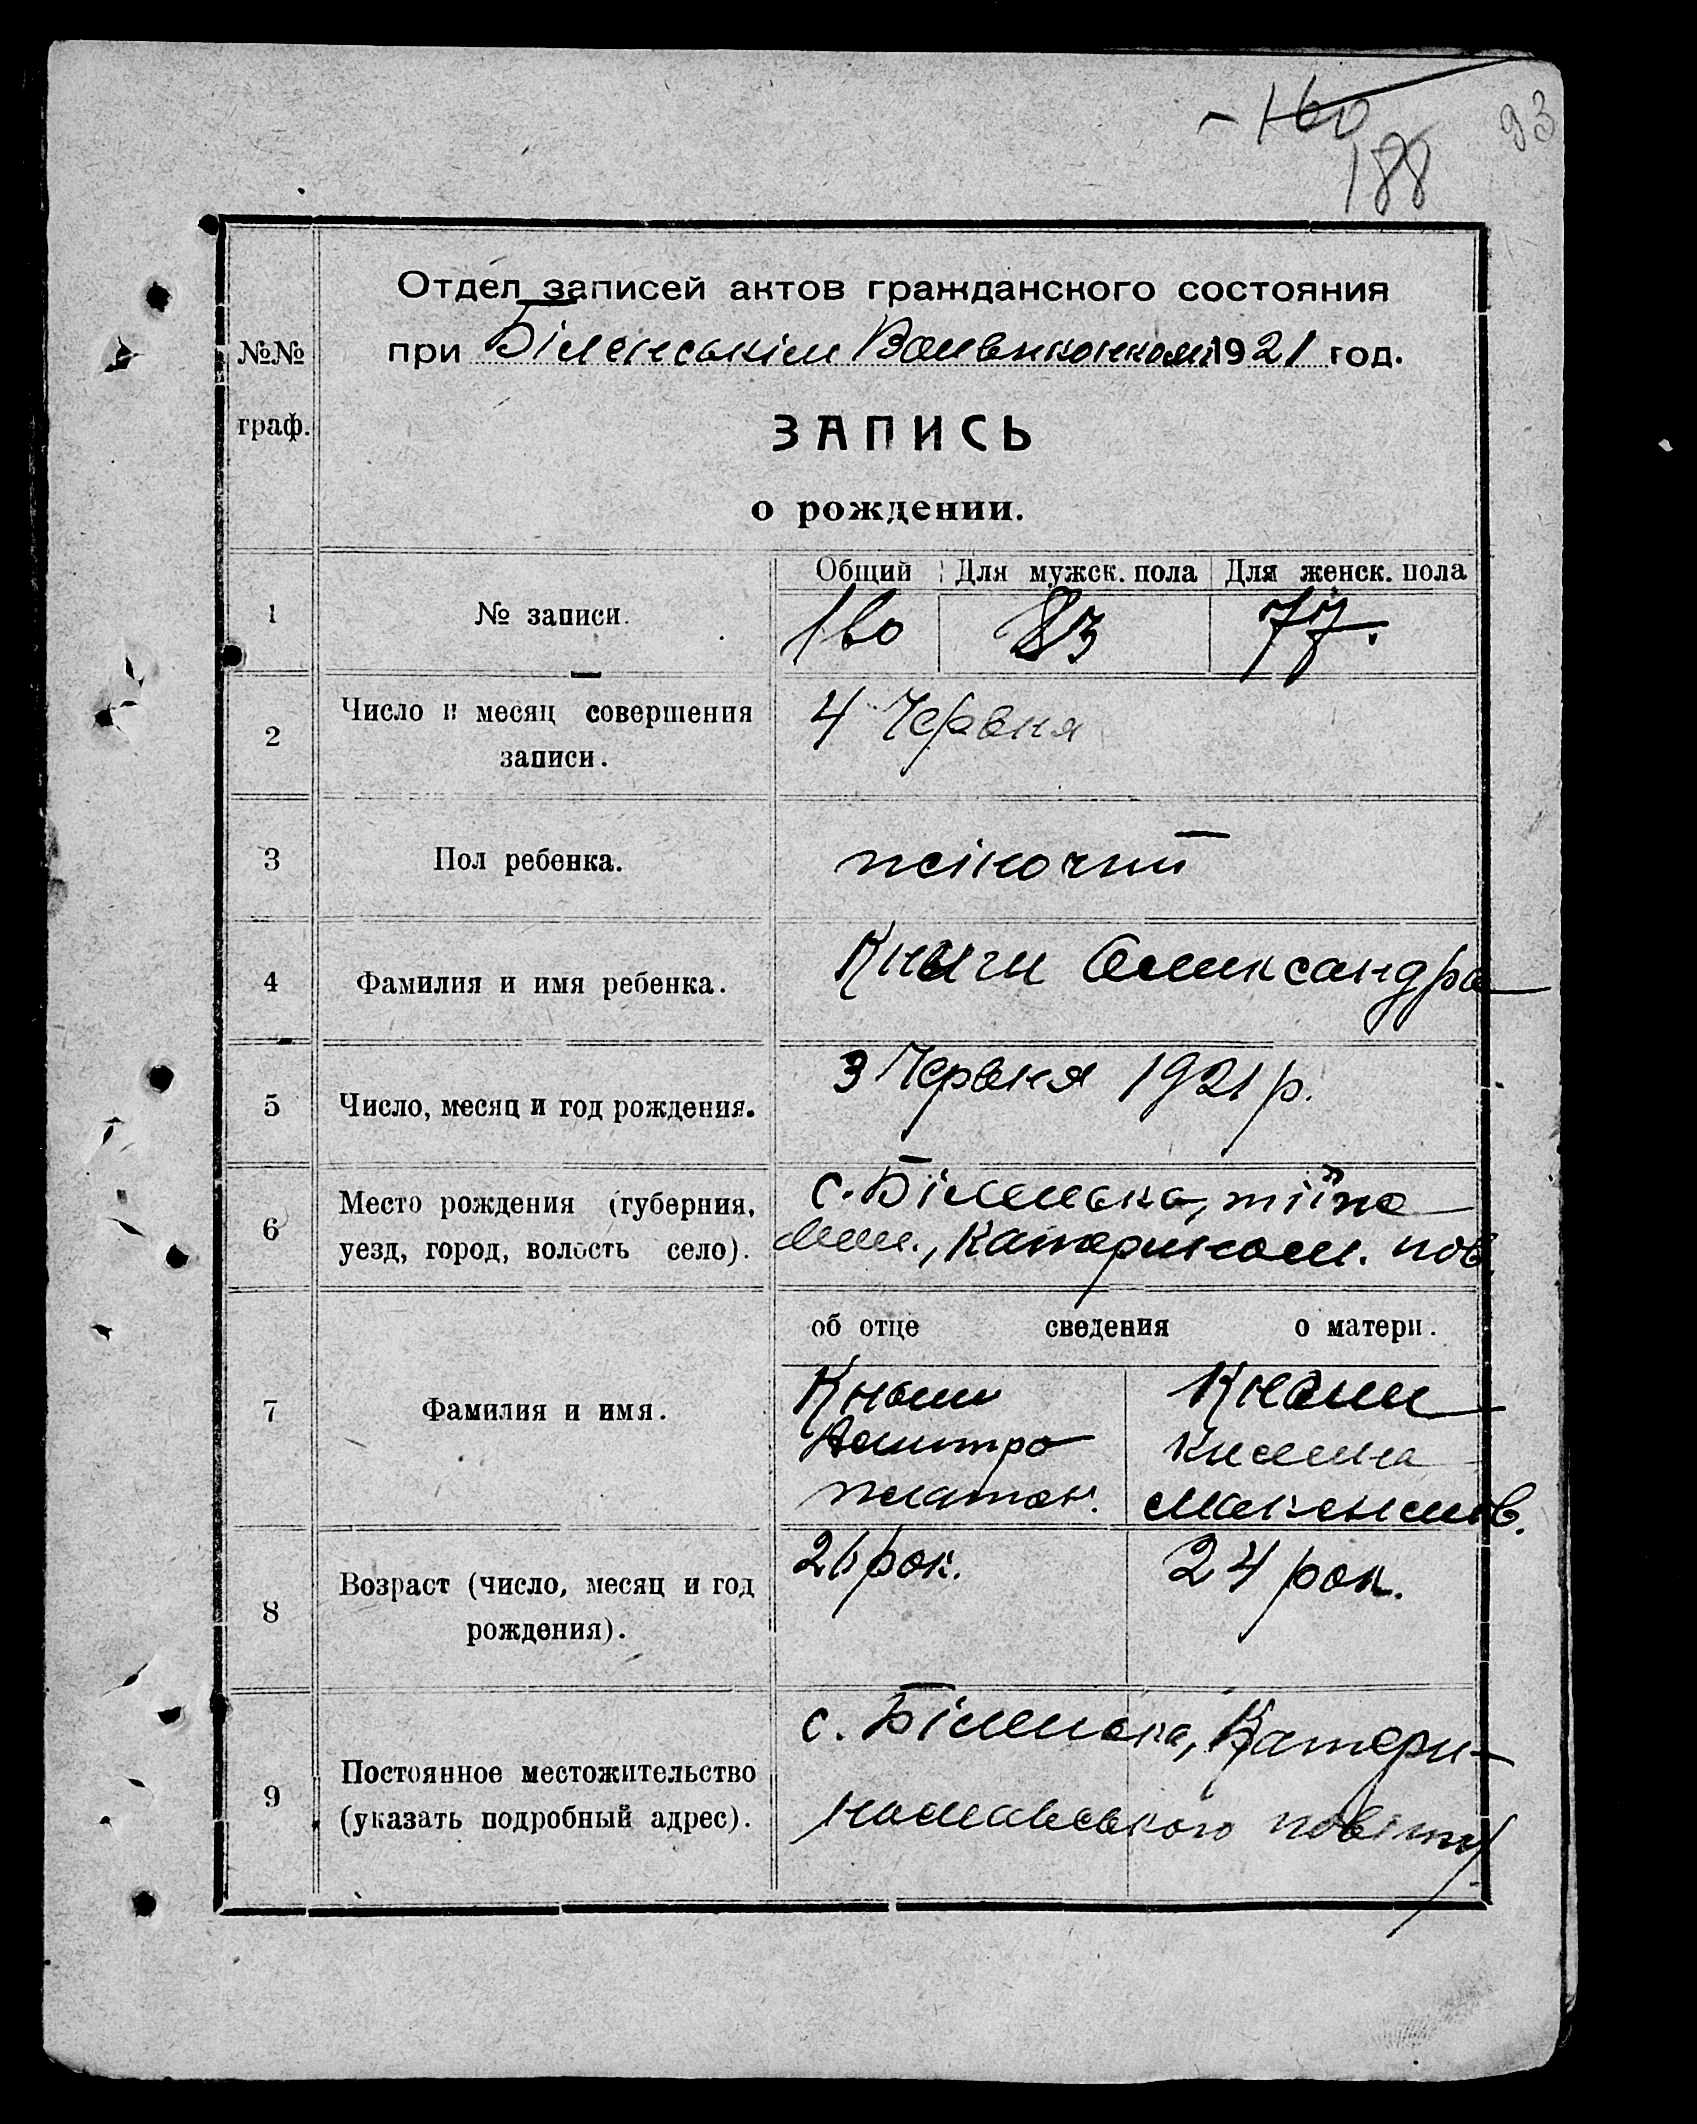 160
188
93
Отдел записей актов гражданского состояния
при Біленськім Волвиконкомі 1921 год.
№№
граф.
ЗАПИСЬ
о рождении.
Общий Для мужск. пола Для женск. пола
1 № записи. 160 83 77.
2 Число и месяц совершения записи. 4 Червня
3 Пол ребенка. жіночий
4 Фамилия и имя ребенка. Олександра
5 Число, месяц и год рождения. 3 Червня 1921 р.
6 Место рождения (губерния,
уезд, город, волость село). с. Біленька, тіїже
Катеринос. пов.
об отце сведения о матери.
7 Фамилия и имя.
Дмитро
Платон.
8 Возраст (число, месяц и год
рождения). 26 рок. 24 рок.
9 Постоянное местожительство
(указать подробный адрес). с. Біленька, Катери-
нославського повіту